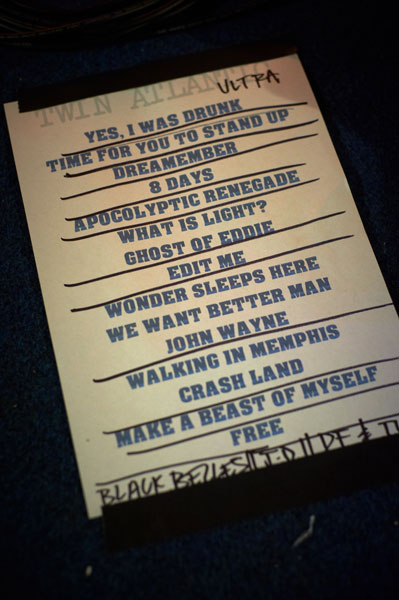 TWIN ATLANTIC
ULTRA
YES, I WAS DRUNK
TIME FOR YOU TO STAND UP
DREAMEMBER
8 DAYS
APOCOLYPTIC RENEGADE
WHAT IS LIGHT?
GHOST OF EDDIE
EDIT ME
WONDER SLEEPS HERE
WE WANT BETTER MAN
JOHN WAYNE
WALKING IN MEMPHIS
CRASH LAND
MAKE A BEAST OF MYSELF
FREE
BLACK BELLES